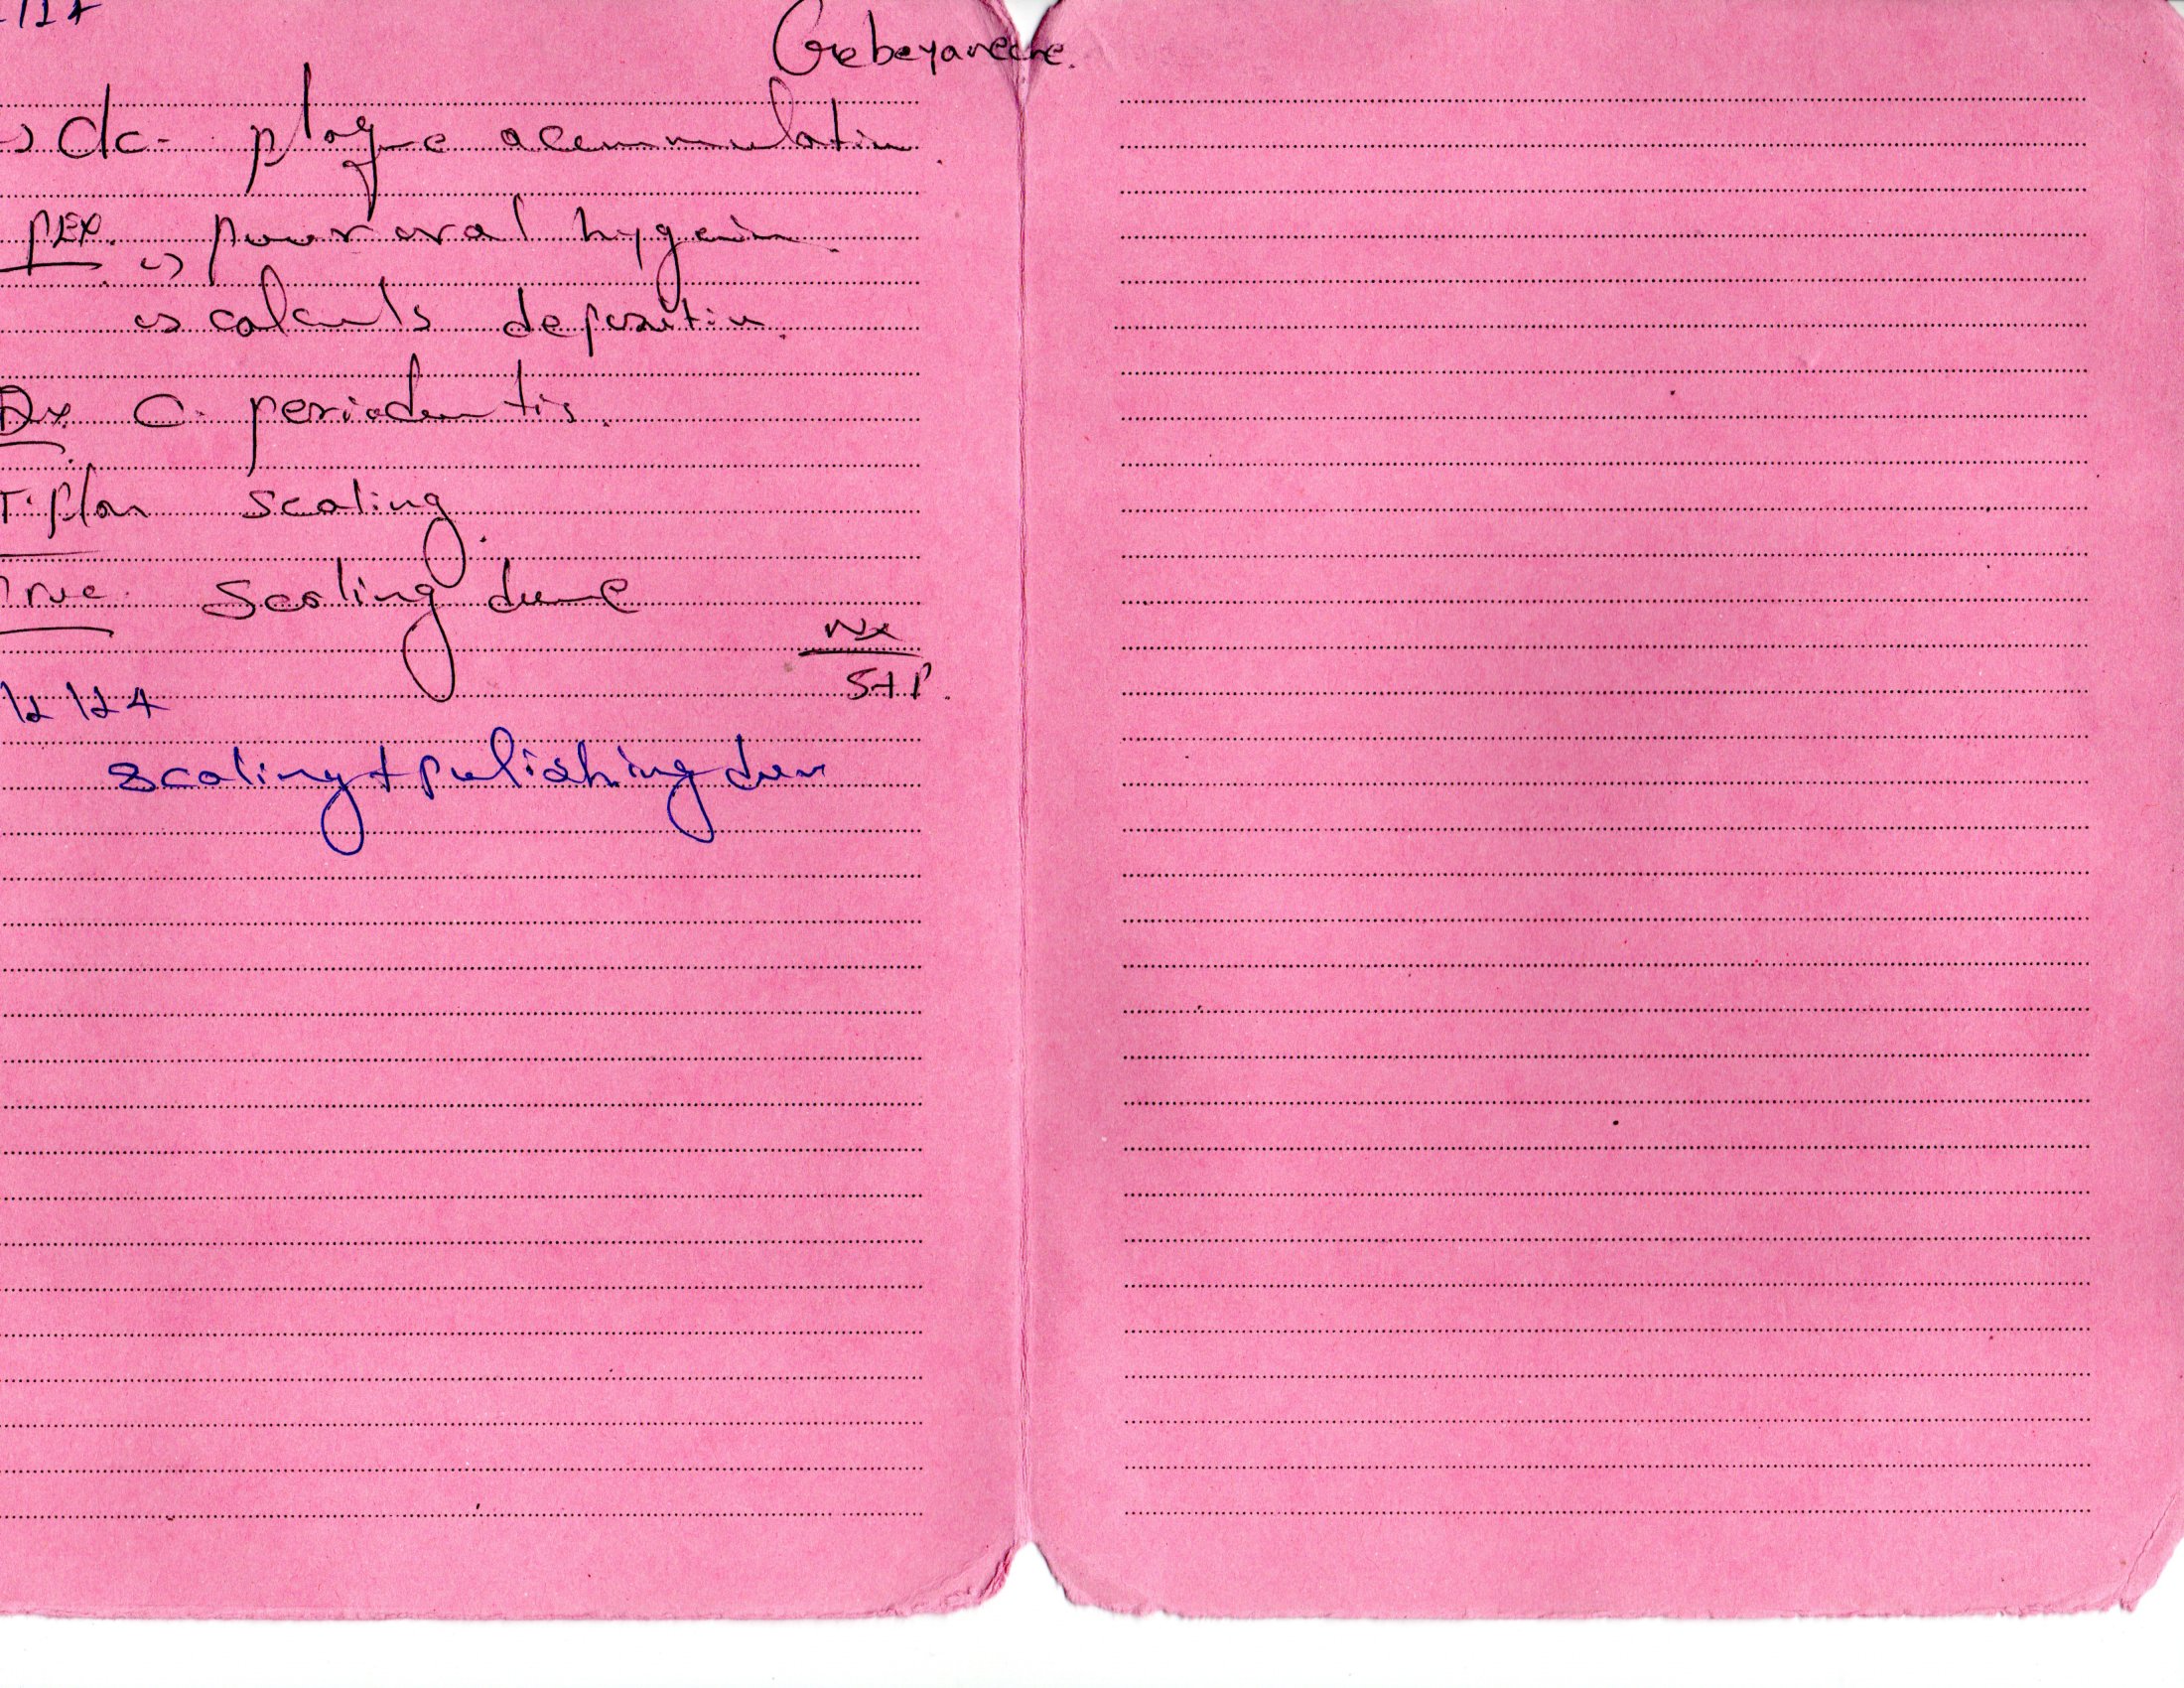 Gebeyaneche.
dc- plaque acummulation.
PEX. poor oral hygein.
calculs deposition.
Dx. C. periodontis.
T. plan scaling.
scaling done
Nx
S+P.
12/24
scaling + polishing done